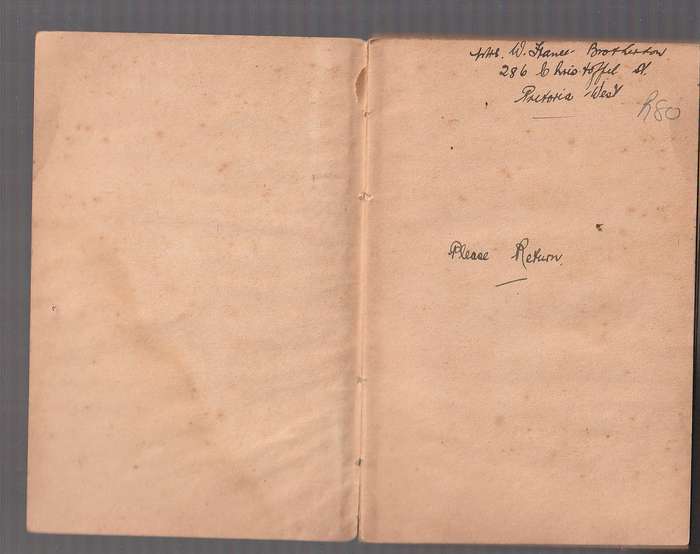 Mrs. W. France- Brotherton
286 Christoffel St.
Pretoria West
R80
Please Return